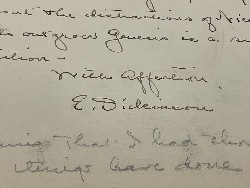 the distractions of
outgrow Genesis is a
tion -
With Affection,
E. Dickinson
things that I had
things have done